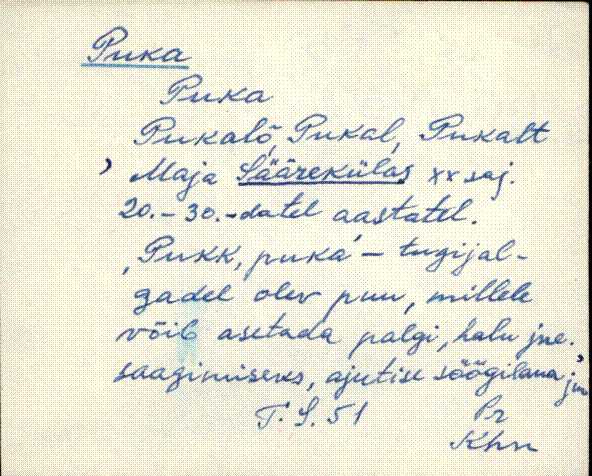 Puka
Puka
Pukalõ, Pukal, Pukalt
, Maja Säärekülas XX saj.
20.-30.-datel aastatel.
'Pukk, puka' – tugijal-
gadel olev puu, millele
võib asetada palgi, halu jne.
saagimiseks, ajutise söögilaua jm
T. S. 51 Pr
Khn